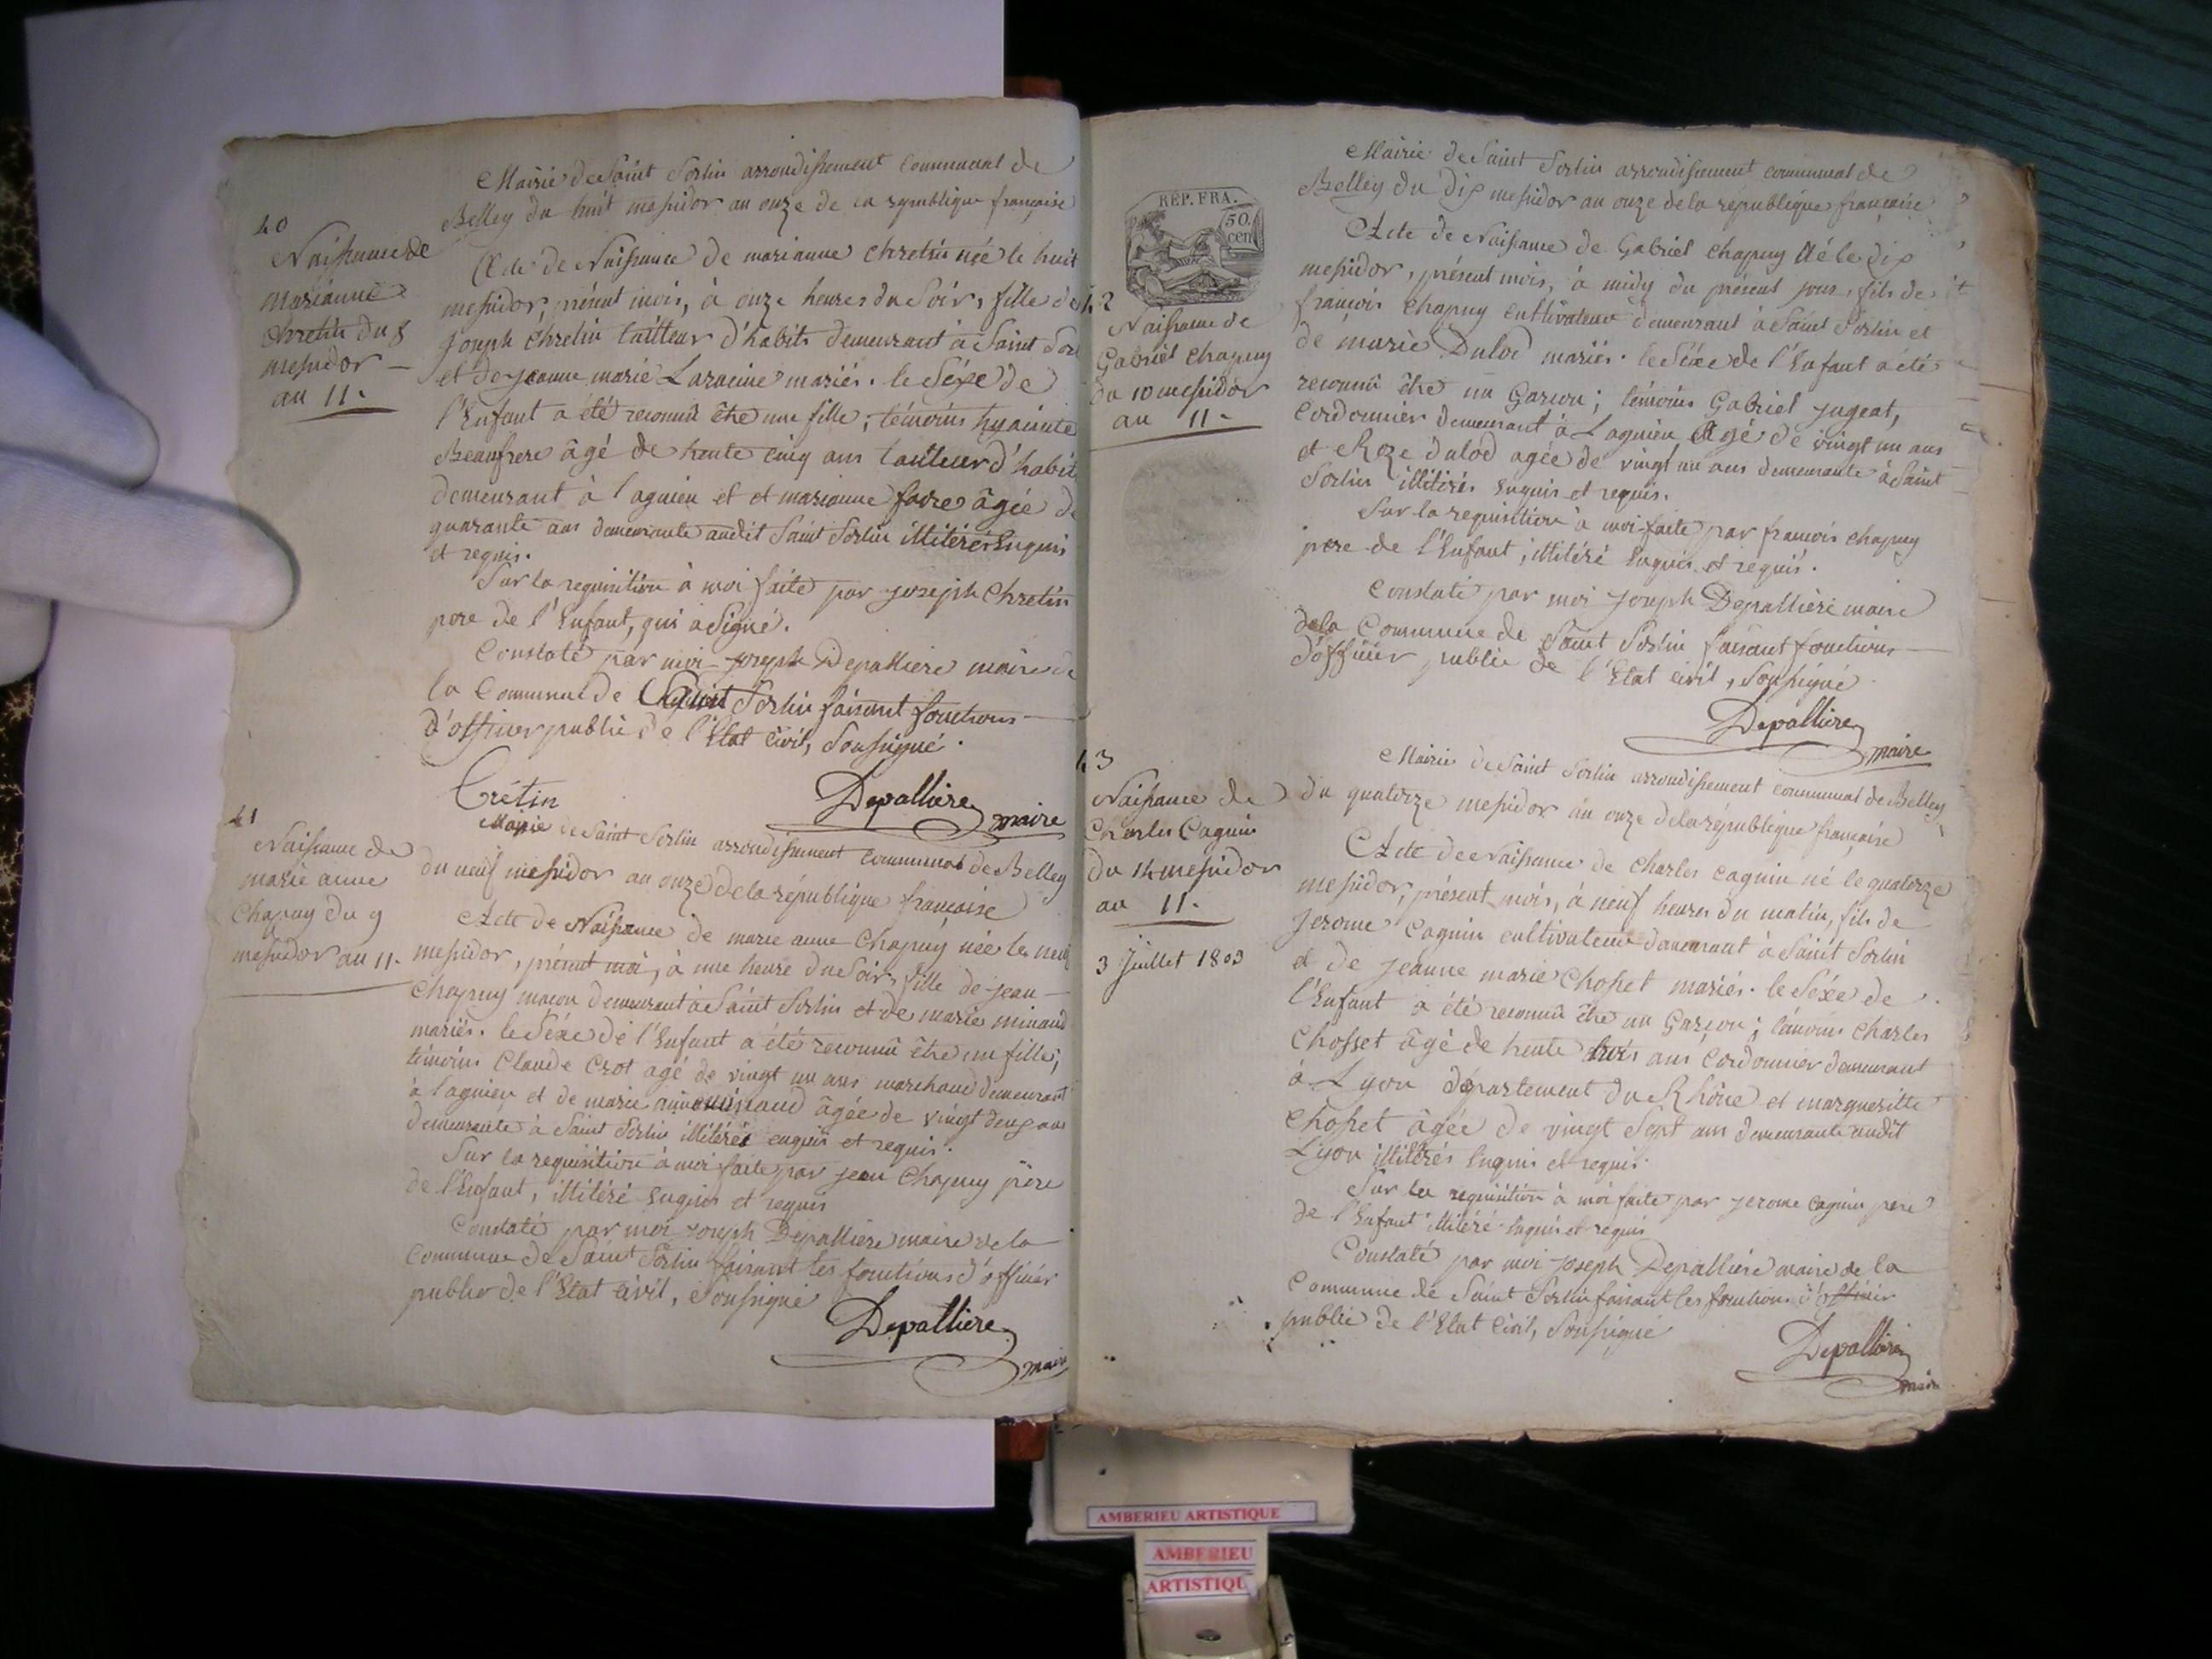 40
Naissance de
marianne
chretin du 8
messidor
an 11.
Mairie de Saint Sorlin arrondissement communal de
Belley du huit messidor an onze de la republique française
Acte de Naissance de marianne chretin née le huit
messidor, présent mois, à onze heures du Soir, fille de
Joseph chretin tailleur d'habits demeurant à Saint Sorl
et de jeanne marie Laracine mariés. le Séxe de
l'Enfant a été reconnu être une fille; témoins hyacinte
Beaufrere âgé de trente cinq ans tailleur d'habit
demeurant à lagnieu et et marianne favre âgée de
quarante ans demeurante audit Saint Sorlin illitérés Enquis
et requis.
Sur la requisition à moi faite par joseph Chretin
pere de l'Enfant, qui à Signé.
Constaté par moi joseph Depalliere maire de
la Commune de Saint Sorlin faisant fonctions
d'officier public de l'Etat civil, Soussigné.
Crétin
Depalliere
maire
41
Naissance de
marie anne
Chapuy du 9
messidor an 11.
Mairie de Saint Sorlin arrondissement communal de Belley
du neuf messidor an onze de la république française
Acte de Naissance de marie anne Chapuy née le neuf
messidor, présent moi, à une heure du Soir, fille de jean
chapuy maçon demeurant à Saint Sorlin et de marie minaud
mariés. le Séxe de l'Enfant a été reconnu être un fille;
témoins Claude Crot agé de vingt un ans marchand demeurant
à lagnieu et de marie anne minaud âgée de vingt deux ans
demeurante à Saint Sorlin illitérés enquis et requis.
Sur la requisition à moi faite par jean Chapuy père
de l'Enfant, illitéré enquis et requis
Constaté par moi joseph Depalliere maire de la
Commune de Saint Sorlin faisant les fonctions d'officier
public de l'Etat civil, Soussigné
Depalliere
maire
RÉP. FRA.
50.
cen
42
Naissance de
Gabriel chapuy
du 10 messidor
an 11.
Mairie de Saint Sorlin arrondissement communal de
Belley du dix messidor an onze de la république française
Acte de Naissance de Gabriel chapuy Né le dix
messidor, présent mois, à midy du présent jour, fils de
francois chapuy cultivateur demeurant à Saint Sorlin et
de marie Dulod mariés. le Séxe de l'Enfant a été
reconnû être un Garçon; témoins Gabriel jugeat,
Cordonnier demeurant à Lagnieu Agé de vingt un ans
et Roze dulod agée de vingt un ans demeurante à Saint
Sorlin illitirés enquis et requis.
Sur la requisition à moi faite par francois chapuy
pere de l'Enfant, illitéré enquis et requis.
Constaté par moi Joseph Depalliere maire
de la Commune de Saint Sorlin faisant fonctions
d'officier public de l'Etat civil, Soussigné
Depalliere
maire
43
Naissance de
Charles Caguin
du 14 messidor
an 11.
3 juillet 1803
Mairie de Saint Sorlin arrondissement communal de Belley
du quatorze messidor an onze de la république française
Acte de Naissance de Charles caguin né le quatorze
messidor, présent mois, à neuf heures du matin, fils de
jerome caguin cultivateur demeurant à Saint Sorlin
et de jeanne marie Chosset mariés. le Séxe de
l'Enfant a été reconnû être un Garçon; témoins Charles
Chosset âgé de trente trois ans Cordonnier demeurant
à Lyon département du Rhône et margueritte
Chosset âgée de vingt Sept ans demeurante audit
Lyon illitérés enquis et requis.
Sur la requisition à moi faite par jerome Caguin pere
de l'Enfant illitéré enquis et requis
Constaté par moi joseph Depalliere maire de la
Commune de Saint Sorlin faisant les fonctions d'officier
public de l'Etat civil, Soussigné
Depalliere
maire
AMBERIEU ARTISTIQUE
AMBERIEU
ARTISTIQU